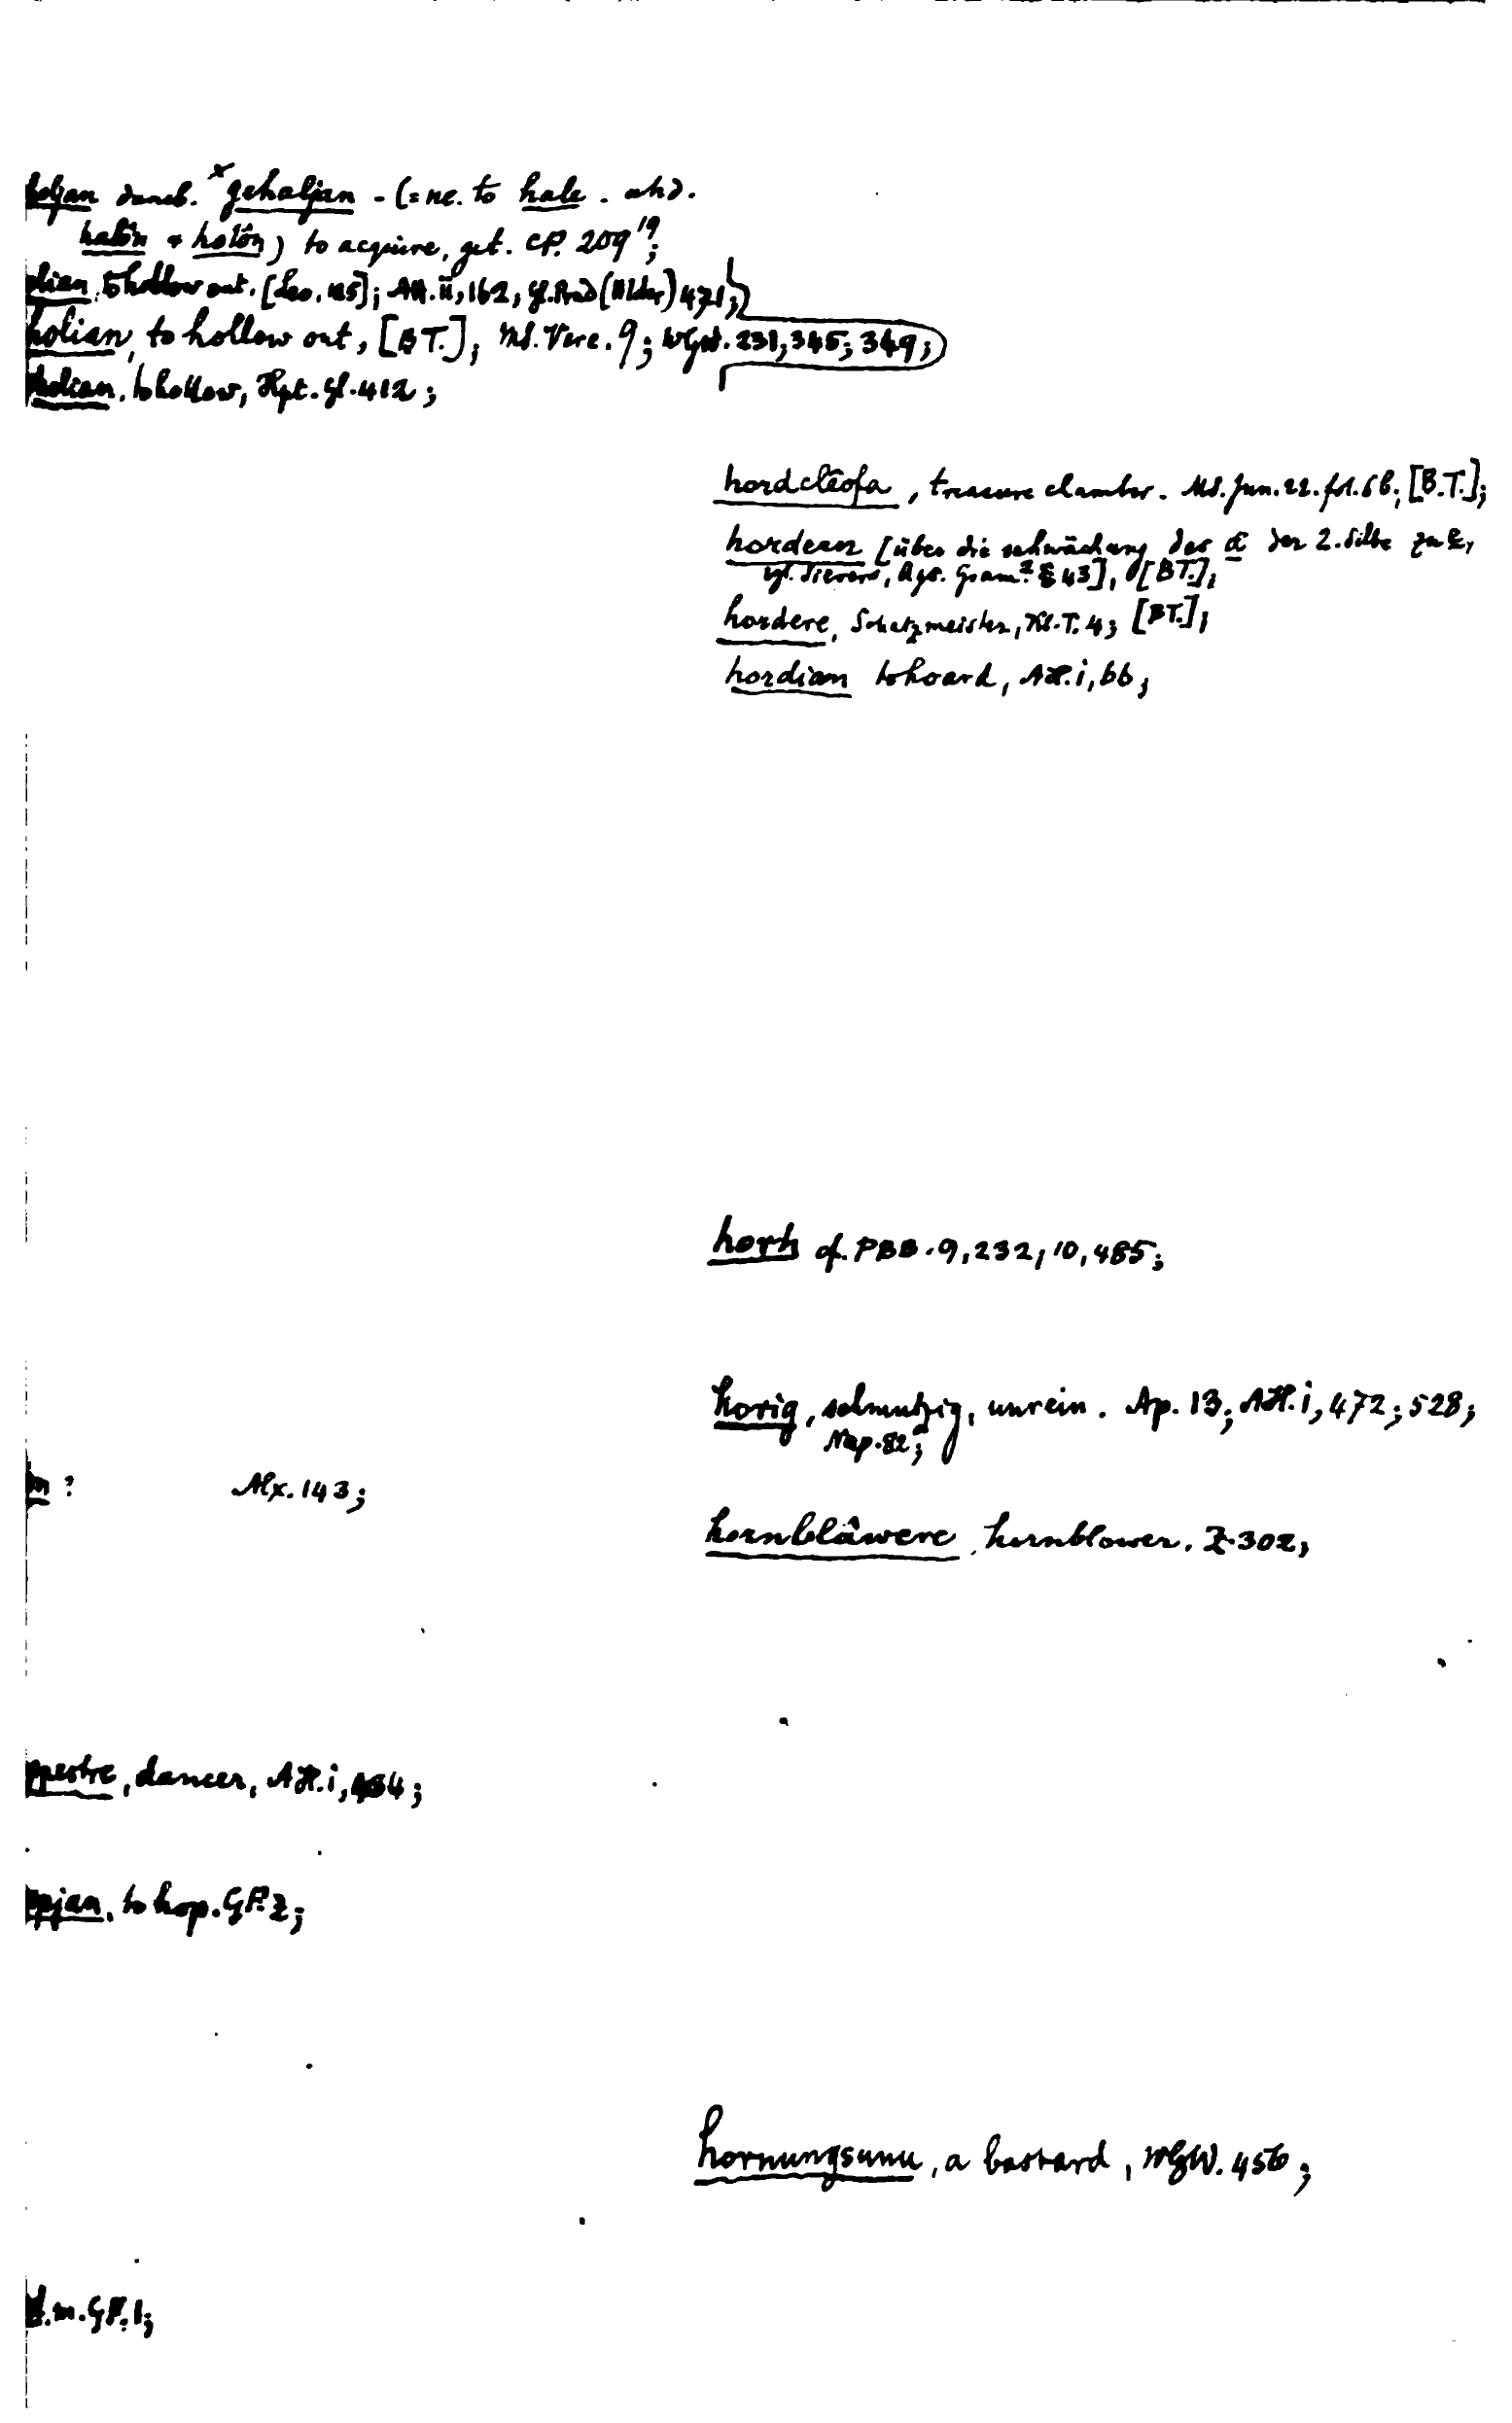 holjan daneb. ×gehaljan - (= ne. to hale. ahd.
halôn + holôn) to acquire, get. CP. 209¹⁹;
olian, to hollow out. [Leo. 125]; AH. ii, 162; gl. Prud (Holder) 471;
holian, to hollow out, [BT.]; Ms. Verc. 9; WGW. 231; 345; 349;
holian. to hollow, Hpt. Gl. 412;
hordclêofa, treasure chamber. Ms. Jun. 22. fol. 6b; [B.T.];
hordern [über die schwächung des æ der 2. Silbe zu e,
vgl. Sievers, Ags. Gram.² § 43], [BT.];
hordere, Schatzmeister, Kl. T. 4; [BT.];
hordian to hoard, AH. i, 66;
horh cf. PBB. 9, 232; 10, 485;
horig, schmutzig, unrein. Ap. 13; AH. i, 472; 528;
Nap. 82;
? Alx. 143;
hornblâwere hornblower. Z. 302;
ppestre, dancer, AH. i, 484;
ppjan. to hop. GP. 2;
hornungsunu, a bastard, WGW. 456;
m. GP. 1;